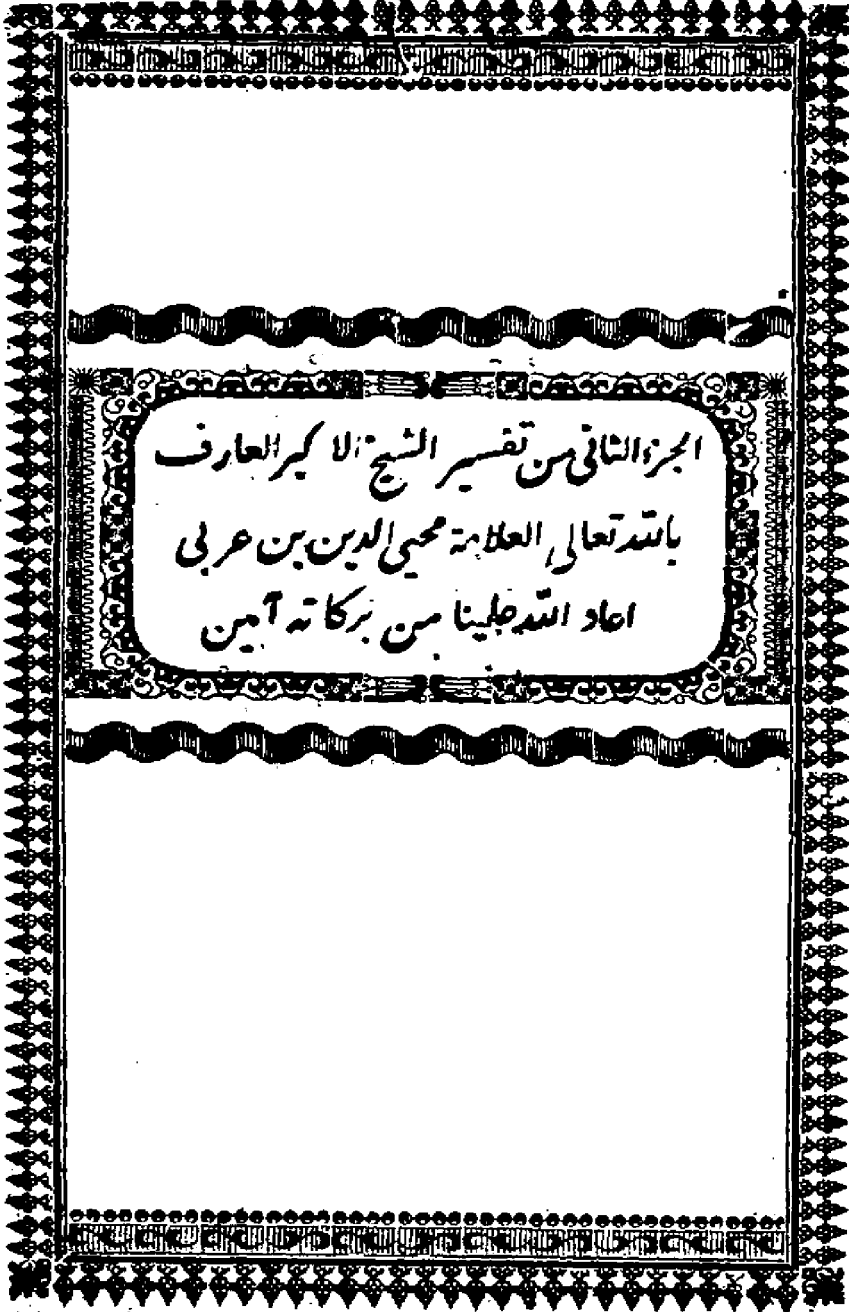 الجزء الثانى من تفسير الشيخ الاكبر العارف
بالله تعالى العلامة محيى الدين بن عربى
اعاد الله علينا من بركاته آمين